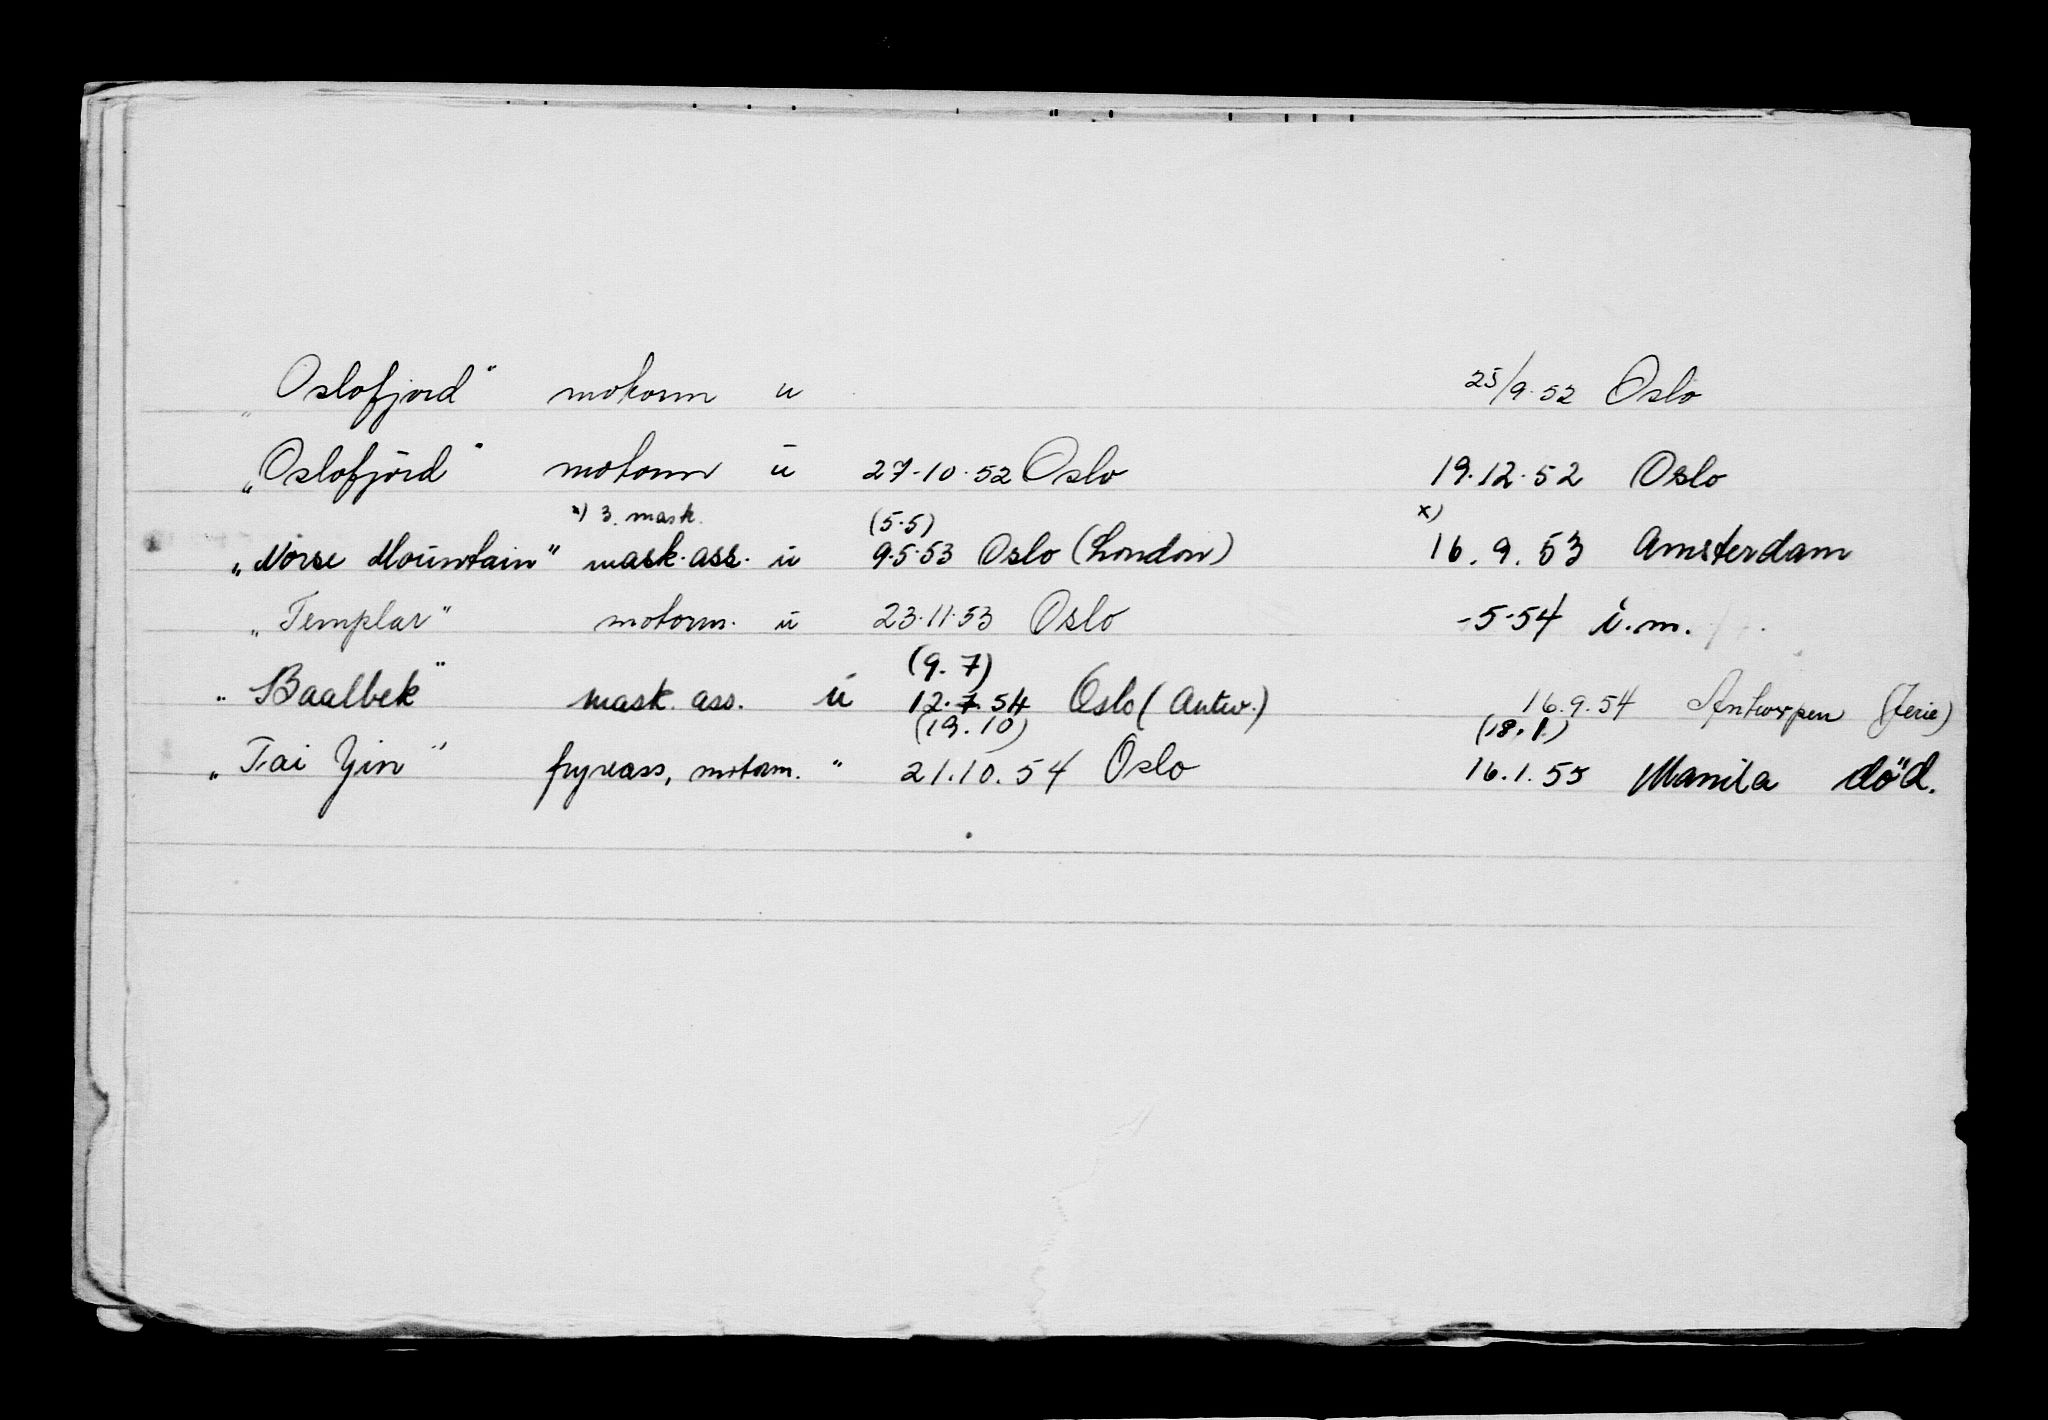 „Oslofjord" motorm u 25/9.52 Oslo
„Oslofjord" motorm u 27.10.52 Oslo 19.12.52 Oslo
x) 3. mask. (5.5) x)
„Norse Mountain" mask.ass. u 9.5.53 Oslo (London) 16.9.53 Amsterdam
„Templar" motorm. u 23.11.53 Oslo -5.54 i.m.
(9.7)
„Baalbek" mask. ass. u 12.7.54 Oslo (Antw.) 16.9.54 Antwerpen (ferie)
(19.10) (18.1)
„Tai Yin" fryseass, motorm. " 21.10.54 Oslo 16.1.55 Manila död.